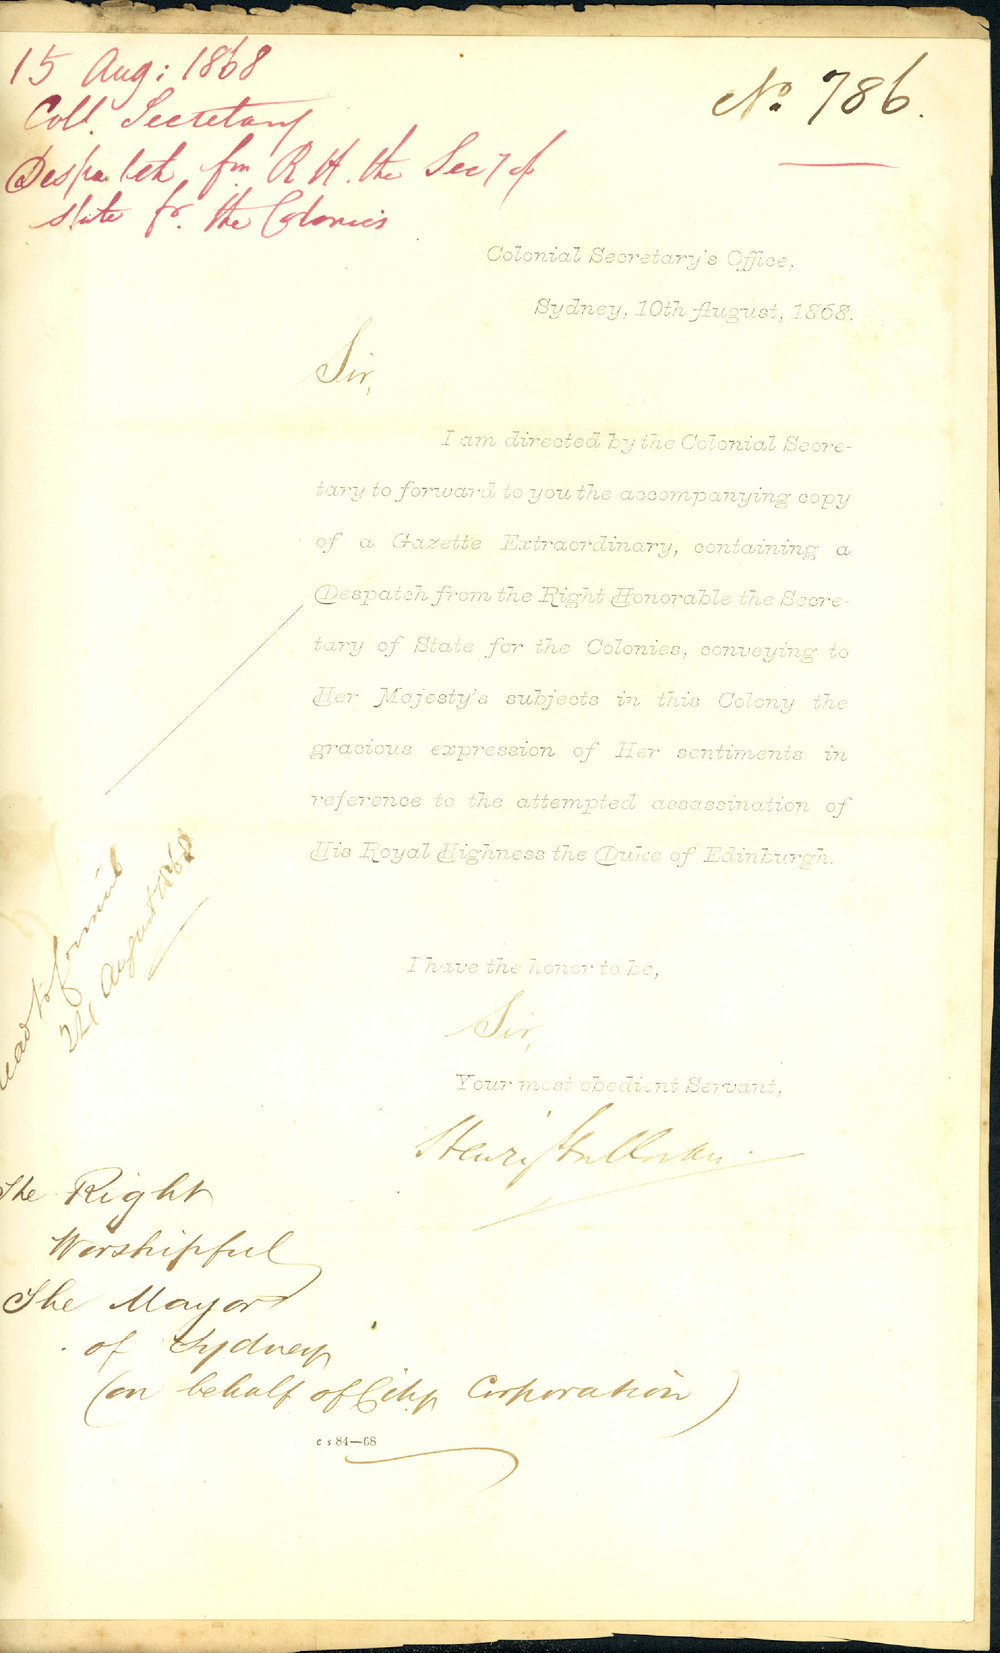 15 Aug: 1868
Coll. Secretary
Despatch fm R H. the Secy of
state fr. the Colonies
No. 786.
Colonial Secretary's Office,
Sydney, 10th August, 1868.
Sir,
I am directed by the Colonial Secre-
tary to forward to you the accompanying copy
of a Gazette Extraordinary, containing a
Despatch from the Right Honorable the Secre-
tary of State for the Colonies, conveying to
Her Majesty's subjects in this Colony the
gracious expression of Her sentiments in
reference to the attempted assassination of
His Royal Highness the Duke of Edinburgh.
read to Council
24 August 1868
I have the honor to be,
Sir,
Your most obedient Servant,
Henry Halloran.
The Right
Worshipful
The Mayor
of Sydney
(on behalf of City Corporation)
c s 84—68